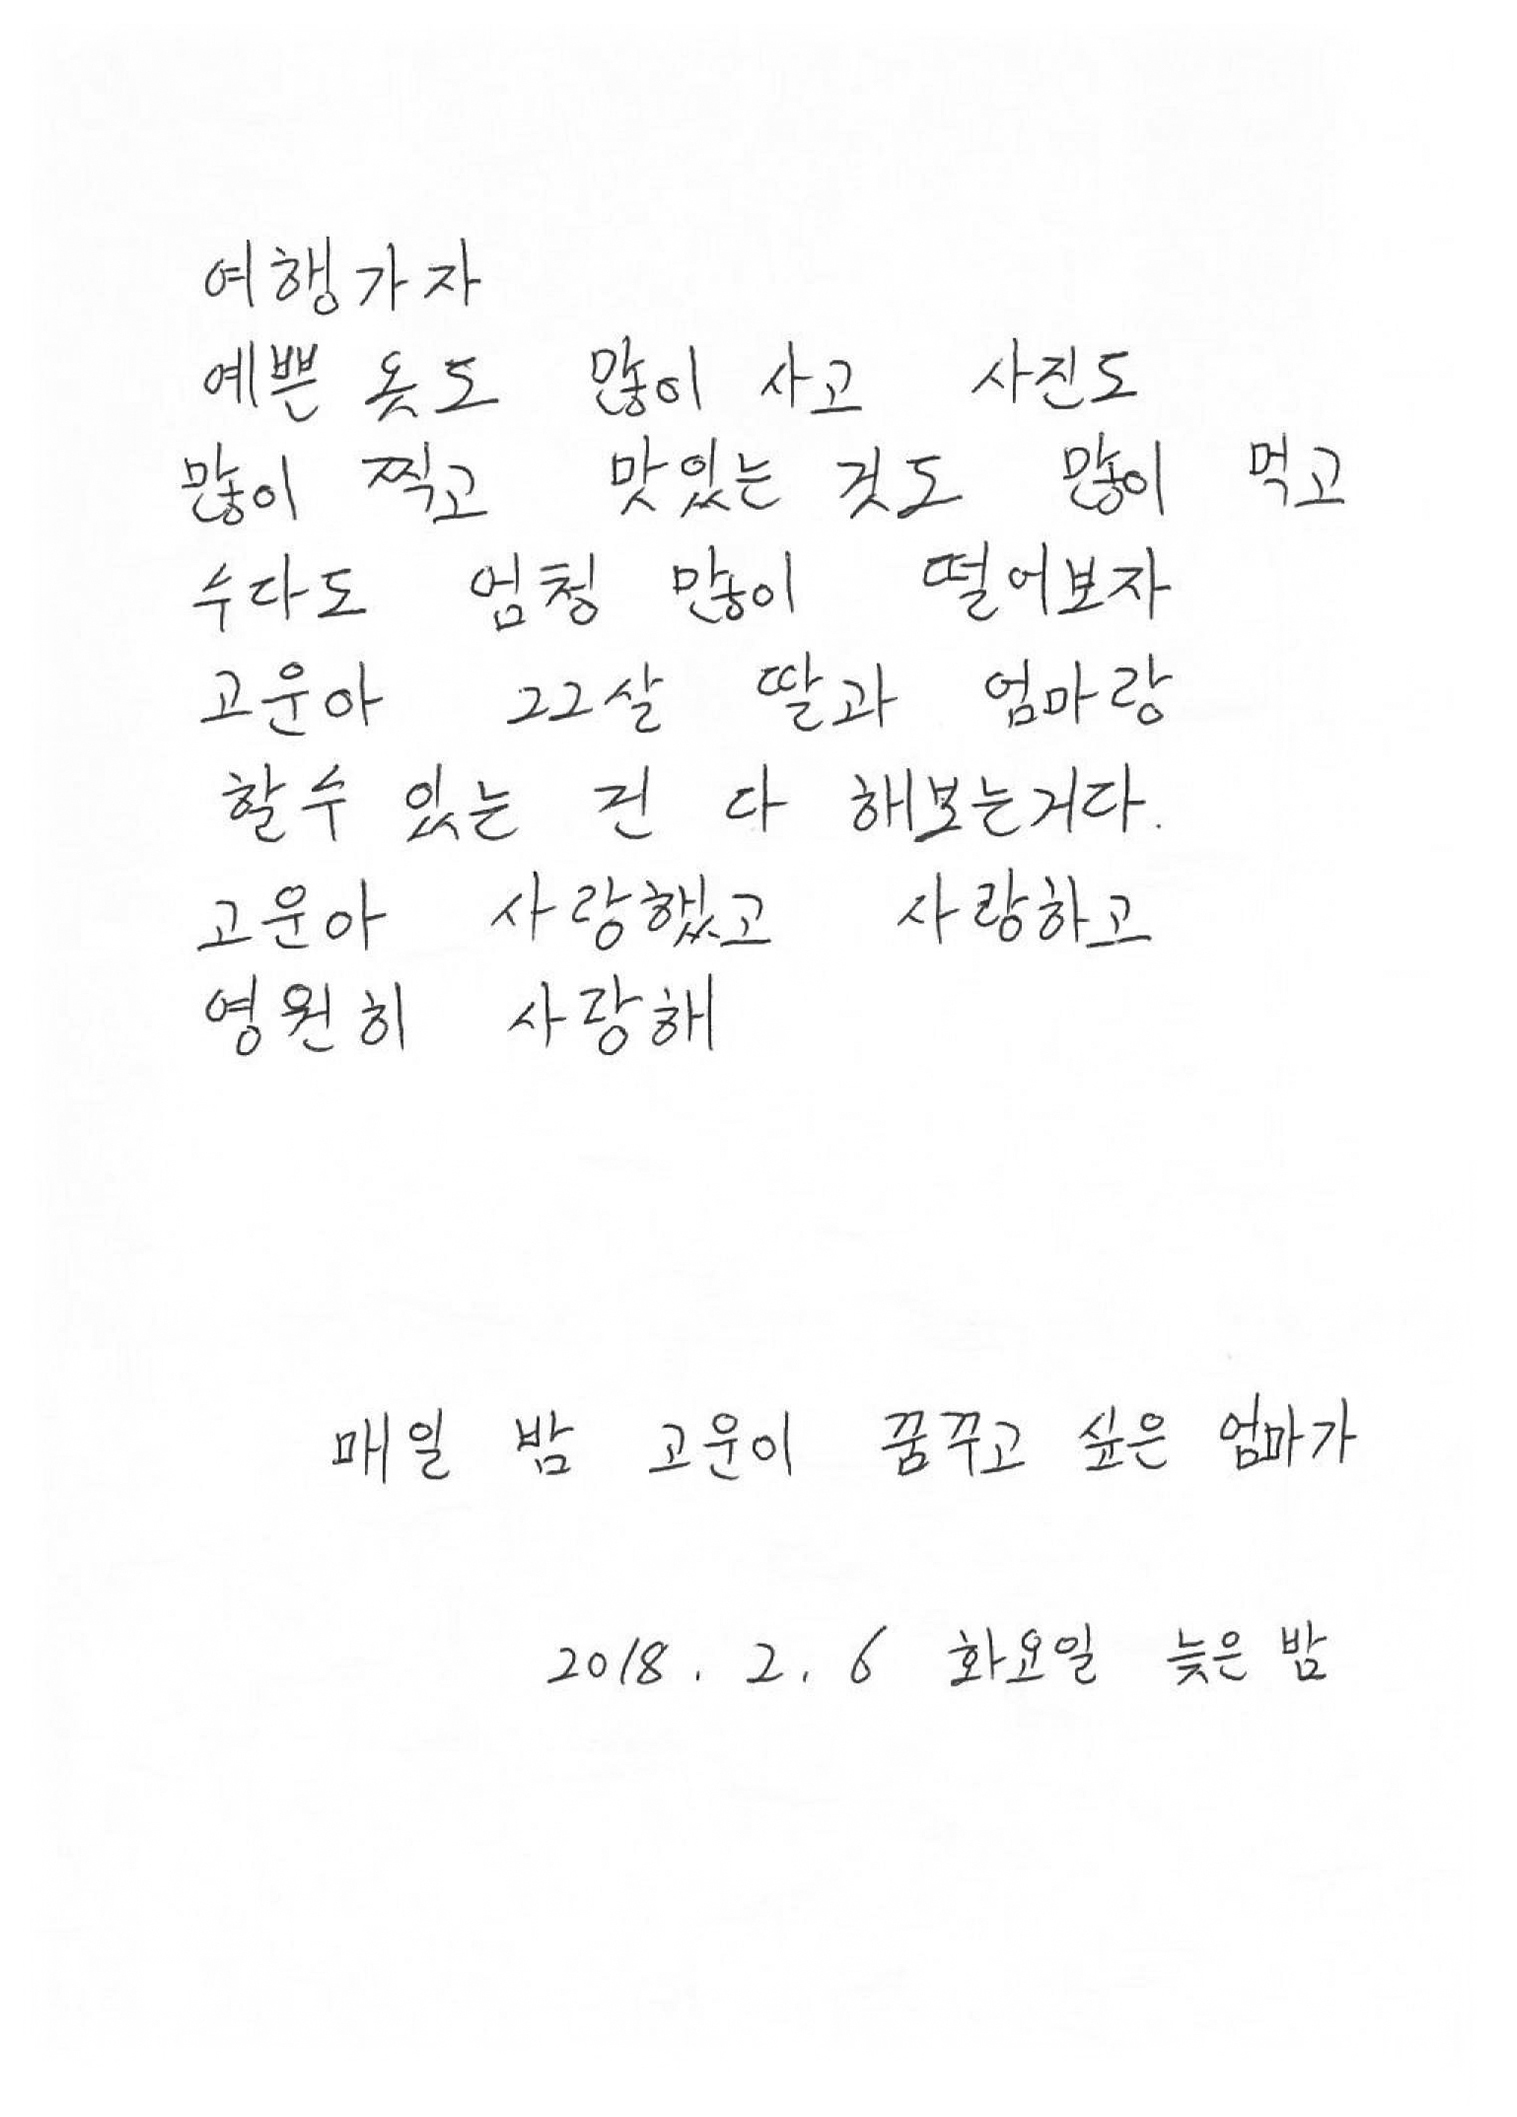 여행가자
예쁜 옷도 많이 사고 사진도
많이 찍고 맛있는 것도 많이 먹고
수다도 엄청 많이 떨어보자
고운아 22살 딸과 엄마랑
할수 있는 건 다 해보는거다.
고운아 사랑했고 사랑하고
영원히 사랑해
매일 밤 고운이 꿈꾸고 싶은 엄마가
2018. 2. 6 화요일 늦은 밤